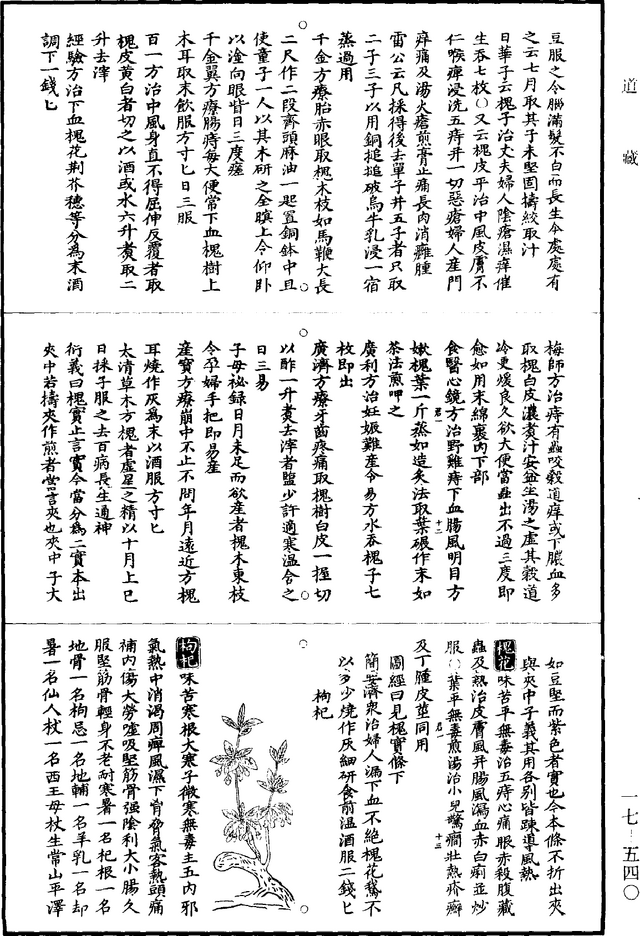 道藏
豆服之令腦滿髮不白而長生今處處有
之云七月取其子未堅固擣絞取汁
日華子云槐子治丈夫婦人陰瘡濕痒催
生吞七枚○又云槐皮平治中風皮膚不
仁喉痺浸洗五痔并一切惡瘡婦人産門
痒痛及湯火瘡煎膏止痛長肉消癰腫
雷公云凡採得後去單子并五子者只取
二子三子以用銅搥搥破烏牛乳浸一宿
蒸過用
千金方療胎赤眼取槐木枝如馬鞭大長
二尺作二段齊頭麻油一匙置銅鉢中且
使童子一人以其木研之至瞑上令仰卧
以塗向眼眥日三度瘥
千金翼方療腸痔每大便常下血槐樹上
木耳取末飲服方寸匕日三服
百一方治中風身直不得屈伸反覆者取
槐皮黄白者切之以酒或水六升煮取二
升去滓
經驗方治下血槐花荆芥穗等分為末酒
調下一錢匕
梅師方治痔有蟲咬穀道痒或下膿血多
取槐白皮濃煮汁安盆坐湯之虛其穀道
冷更煖良久欲大便當蟲出不過三度即
愈如用末綿裹内下部
食醫心鏡方治野雞痔下血腸風明目方
嫩槐葉一斤蒸如造炙法取葉碾作末如
茶法煎呷之
廣利方治妊娠難産令易方水吞槐子七
枚即出
廣濟方療牙齒疼痛取槐樹白皮一握切
以酢一升煮去滓着鹽少許適寒温含之
日三易
子母祕録日月未足而欲産者槐木東枝
令孕婦手把即易産
産寶方療崩中不止不問年月遠近方槐
耳燒作灰為末以酒服方寸匕
太清草木方槐者虛星之精以十月上巳
日採子服之去百病長生通神
衍義曰槐實止言實今當分為二實本出
夾中若擣夾作煎者當言夾也夾中子大
如豆堅而紫色者實也今本條不折出夾
與夾中子義其用各别皆踈導風熱
槐花 味苦平無毒治五痔心痛眼赤殺腹藏
蟲及熱治皮膚風并腸風瀉血赤白痢並炒
服○葉平無毒煎湯治小兒驚癎壯熱疥癬
及丁腫皮莖同用
圖經曰見槐實條下
簡要濟衆治婦人漏下血不絶槐花鵝不
以多少燒作灰細研食前温酒服二錢匕
枸杞
枸杞 味苦寒根大寒子微寒無毒主五内邪
氣熱中消渴周痺風濕下胷脅氣客熱頭痛
補内傷大勞嘘吸堅筋骨强陰利大小腸久
服堅筋骨輕身不老耐寒暑一名杞根一名
地骨一名枸忌一名地輔一名羊乳一名却
暑一名仙人杖一名西王母杖生常山平澤
一七‐五四〇